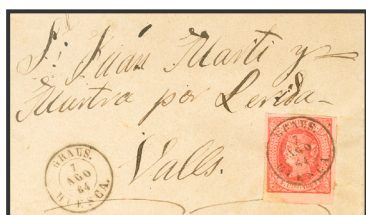 Sr. Juan Marti y
por Lerida
Valls.
GRAUS.
7
AGO
64
HUESCA.
GRAUS.
7
AGO
64
HUESCA.